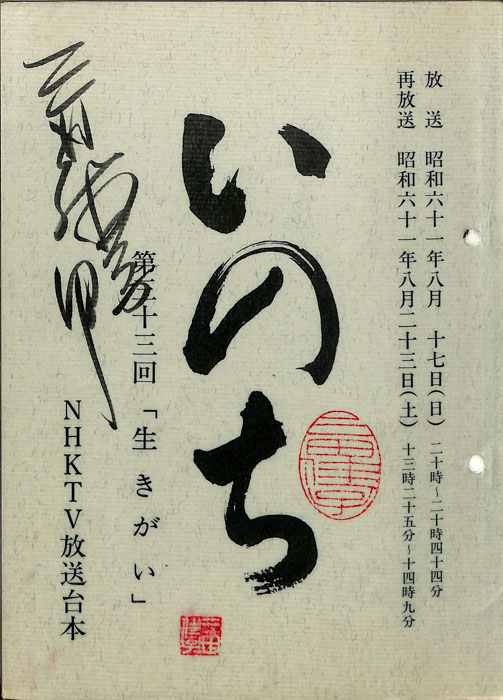 放送 昭和六十一年八月 十七日(日) 二十時~二十時四十四分
再放送 昭和六十一年八月二十三日(土) 十三時二十五分~十四時九分
いのち
第三十三回「生きがい」
NHKTV放送台本